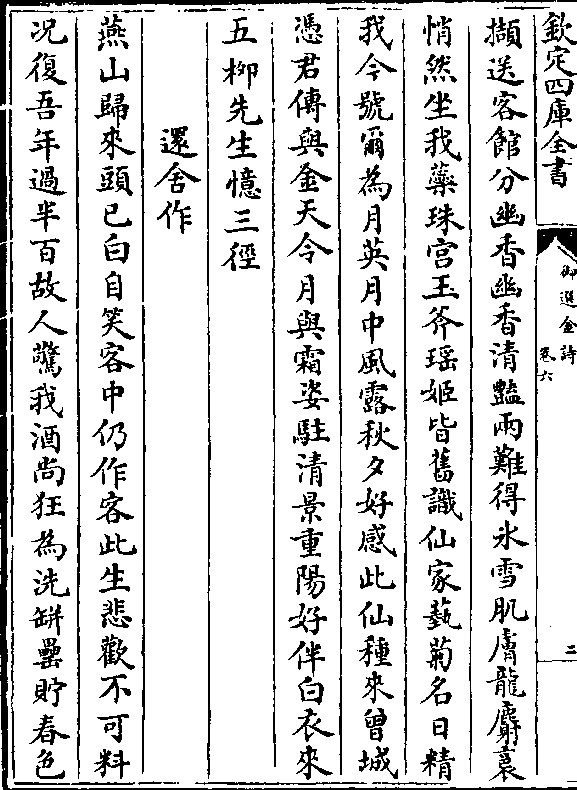 欽定四庫全書
御選金詩
卷六
二
擷送客館分幽香幽香清豔兩難得氷雪肌膚龍麝裏
悄然坐我蘂珠宮玉斧瑶姬皆舊識仙家蓺菊名日精
我今號爾為月英月中風露秋夕好感此仙種來曾城
憑君傳與金天令月與霜姿駐清景重陽好伴白衣來
五栁先生憶三徑
還舍作
燕山歸來頭已白自笑客中仍作客此生悲歡不可料
况復吾年過半百故人驚我酒尚狂為洗缾罍貯春色